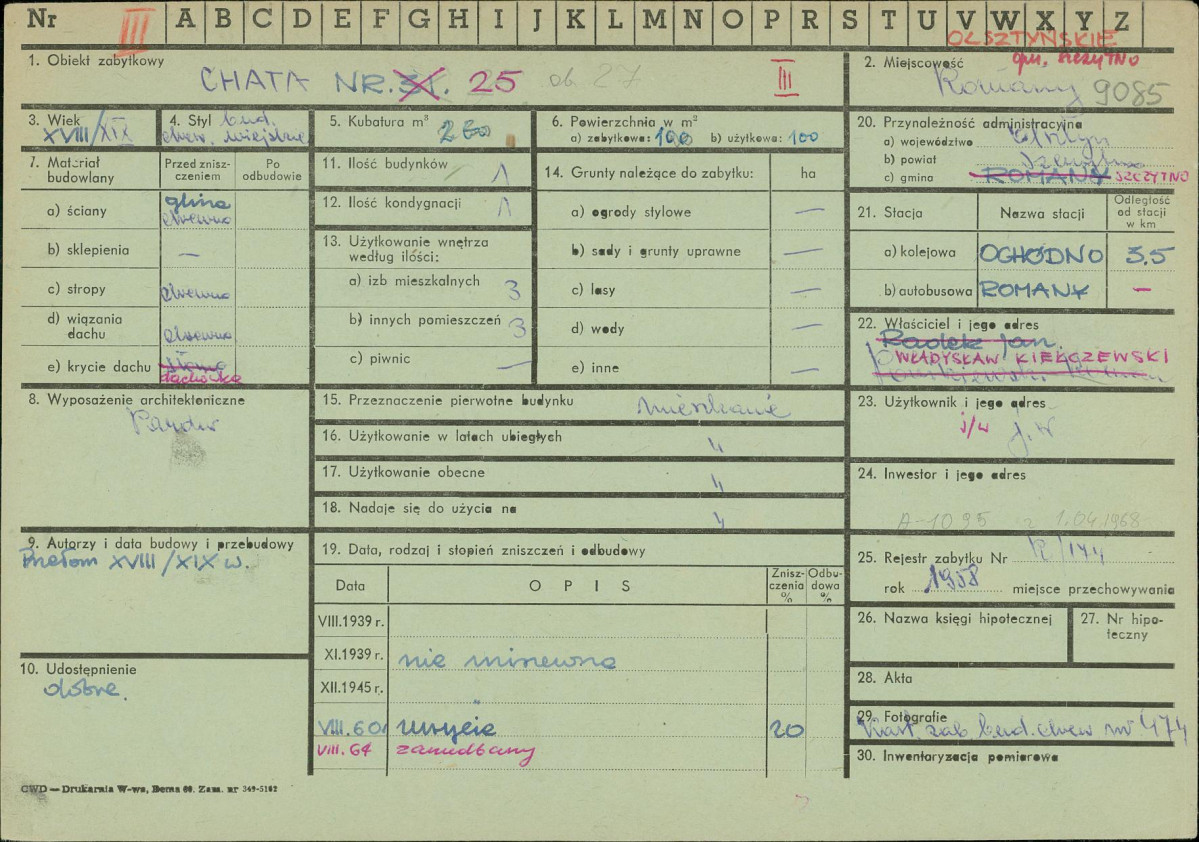 Nr III A B C D E F G H I J K L M N O P R S T U V W X Y Z
OLSZTYŃSKIE
gm. SZCZYTNO
1. Obiekt zabytkowy
CHATA NR. 31. 25 ob. 27
III
2. Miejscowość
Romany 9085
3. Wiek
XVIII/XIX
4. Styl bud.
drew. wiejskie
5. Kubatura m³
260
6. Powierzchnia w m²
a) zabytkowa: 100 b) użytkowa: 100
20. Przynależność administracyjna
a) województwo Olsztyn
b) powiat Szczytno
c) gmina ROMANY SZCZYTNO
7. Materiał budowlany
Przed zniszczeniem
Po odbudowie
a) ściany glina
drewno
b) sklepienia —
c) stropy drewno
d) wiązania dachu drewno
e) krycie dachu słoma
dachówka
11. Ilość budynków 1
12. Ilość kondygnacji 1
13. Użytkowanie wnętrza
według ilości:
a) izb mieszkalnych 3
b) innych pomieszczeń 3
c) piwnic —
14. Grunty należące do zabytku: ha
a) ogrody stylowe —
b) sady i grunty uprawne —
c) lasy —
d) wody —
e) inne —
21. Stacja
Nazwa stacji
Odległość
od stacji
w km
a) kolejowa OGHÓDNO 3.5
b) autobusowa ROMANY —
22. Właściciel i jego adres
Radek Jan.
WŁADYSŁAW KIEŁCZEWSKI
8. Wyposażenie architektoniczne
15. Przeznaczenie pierwotne budynku mieszkanie
16. Użytkowanie w latach ubiegłych "
17. Użytkowanie obecne "
18. Nadaje się do użycia na "
23. Użytkownik i jego adres
j/w j.w
24. Inwestor i jego adres
A-1095 z 1.04.1968
9. Autorzy i data budowy i przebudowy
Przełom XVIII/XIX w.
10. Udostępnienie
dobre.
19. Data, rodzaj i stopień zniszczeń i odbudowy
Data
O P I S
Zniszczenia %
Odbudowa %
VIII.1939 r.
XI.1939 r. nie minewna
XII.1945 r.
VIII.60 zużycie 20
VIII.64 zaniedbany
25. Rejestr zabytku Nr R/174
rok 1958 miejsce przechowywania
26. Nazwa księgi hipotecznej
27. Nr hipoteczny
28. Akta
29. Fotografie
Kart. zab. bud. drew nr 474
30. Inwentaryzacja pomiarowa
CWD — Drukarnia W-wa, Bema 60. Zam. nr 349-5162